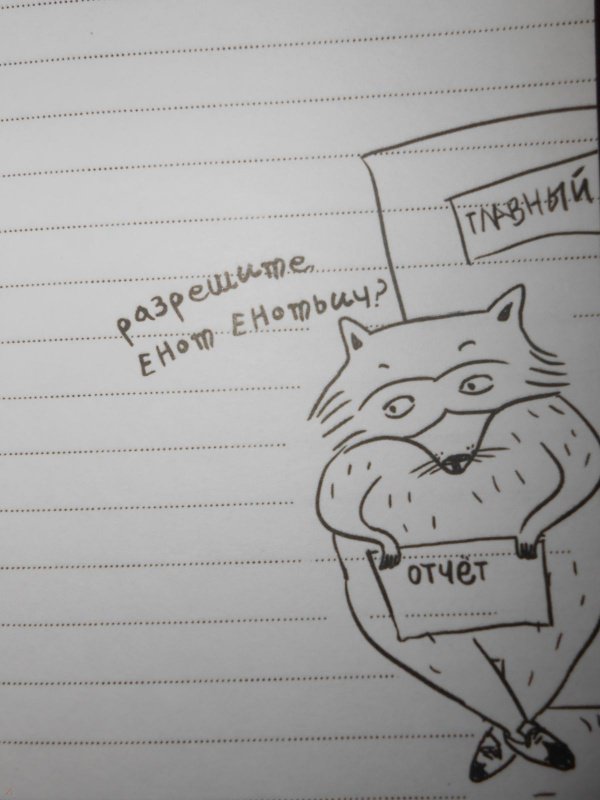 ГЛАВНЫЙ
разрешите,
ЕНОТ ЕНОТЫЧ?
ОТЧЁТ